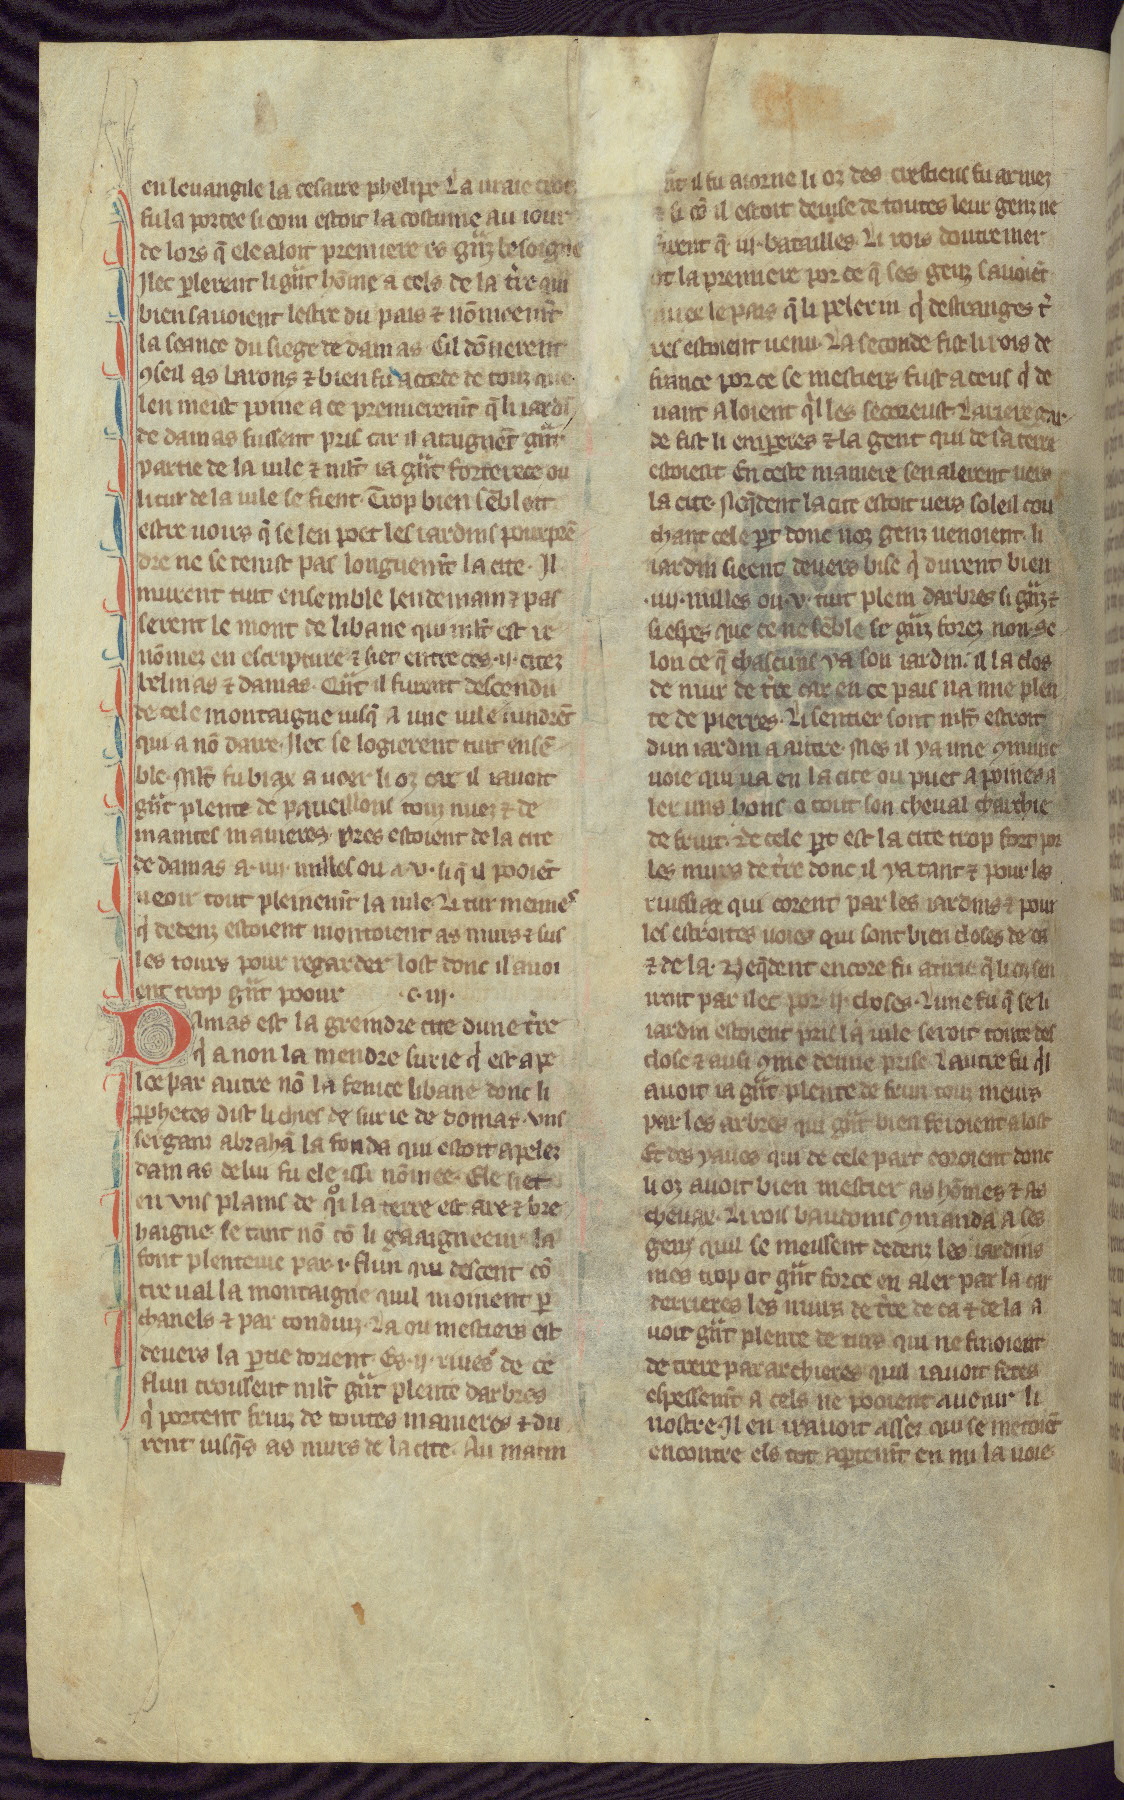 en leuangile la cesaire phelipe La uraie croiz
fu la portee si com estoit la costume au iour
de lors q̄ ele aloit premiere es gn̄z besoigne
Ilec ꝑlerent li gn̄t hōme a cels de la tr̄e qui
bien sauoient lestre du pais ⁊ nōmeem̄t
la seance du siege de damas. Cil dōnerent
ꝯseil as barons ⁊ bien fu acorde de touz que
len meist poine a ce premierem̄t q̄ li iardī
de damas fussent pris car il ataignēt gn̄t
partie de la uile ⁊ mlt̄ ia gn̄t forterece ou
li tur de la uile se fient. Trop bien sēbloit
estre uoirs q̄ se len poet les iardins pourprē
dre ne se tenist pas longuem̄t la cite. Il
murent tuit ensemble lendemain ⁊ pas
serent le mont de libane qui mlt̄ est re
nōmez en escripture ⁊ siet entre ces .ii. citez
belinas ⁊ damas. Qn̄t il furent descendu
de cele montaigne iusq̄ a une uile uindrēt
qui a nō daire. Ilec se logierent tuit ensē
ble. Mlt̄ fu biax a ueer li oz car il iauoit
gn̄t plente de paueillons touz nuez ⁊ de
maintes manieres. pres estoient de la cite
de damas a .iiii. milles ou a .v. si q̄ il pooiēt
ueoir tout pleinem̄t la uile. Li tur meimes
q̄ dedenz estoient montoient as murs ⁊ sus
les tours pour regarder lost donc il auoi
ent trop gn̄t poour .c. iii.
Damas est la greindre cite dune tr̄e
q̄ a non la mendre surie q̄ est ape
lee par autre nō la fenice libane donc li
ꝓphetes dist li chies de surie de domas. vns
serganz abrahā la fonda qui estoit apelez
damas de lui fu ele issi nōmee. Ele siet
en vns plains de qͦi la terre est are ⁊ bre
haigne. se tant nō cō li gaaigneeur la
font plenteiue par .i. flun qui descent cō
tre ual la montaigne quil moinent ꝑ
chanels ⁊ par conduiz. La ou mestiers est
deuers la ꝑtie dorient. Es .ii. riues de ce
flun croissent mlt̄ gn̄t plente darbres
q̄ portent fruiz de toutes manieres ⁊ du
rent iusq̄s as murs de la cite. Au matin
n̄t il fu aiorne li oz des crestiens fu armez
⁊ si cō il estoit deuise de toutes leur genz ne
firent q̄ .iii. batailles. Li rois doutremer
ot la premiere por ce q̄ ses genz sauoiēt
miex le pais q̄ li pelerin q̄ destranges tr̄
res estoient uenu. La seconde fist li rois de
france por ce se mestiers fust a ceus q̄ de
uant aloient q̄l les secoreust Lariere gar
de fist li emperes ⁊ la gent qui de sa terre
estoient En ceste maniere sen alerent uers
la cite. Neq̄dent la cite estoit uers soleil cou
chant cele ꝑt donc noz genz uenoient. li
iardin sieent deuers bise q̄ durent bien
.iiii. milles ou .v. tuit plein darbres si gn̄z ⁊
si espes que ce ne sēble se gn̄z forez non. se
lon ce q̄ chascuns ya son iardin. il la clos
de mur de tr̄e car en ce pais na mie plen
te de pierres. Li sentier sont mlt̄ estroit
dun iardin a autre. Mes il ya une ꝯmune
uoie qui ua en la cite ou puet a poines a
ler uns hons o tout son cheual charchie
de fruit. De cele ꝑt est la cite trop fort por
les murs de tr̄e donc il ya tant ⁊ pour les
ruissiax qui corent par les iardins ⁊ pour
les estroites uoies qui sont bien closes de ca
⁊ de la. Neq̄dent encore fu atirie q̄ li oz sen
iroit par ilec por .ii. choses. Lune fu q̄ se li
iardin estoient pris la uile seroit toute des
close ⁊ ausi ꝯme demie prise Lautre fu q̄l
auoit ia gn̄t plente de fruiz touz meurs
par les arbres qui gn̄t bien feroient a lost
Et des yaues qui de cele part coroient donc
li oz auoit bien mestier as hōmes ⁊ as
cheuax. Li rois baudoins ꝯmanda a ses
genz quil se meissent dedenz les iardins
mes trop ot gn̄t force en aler par la car
derrieres les murs de tr̄e de ca ⁊ de la a
uoit gn̄t plente de turs qui ne finoient
de trere par archieres quil iauoit fetes
espessem̄t a cels ne pooient auenir li
nostre. Il en irauoit assez qui se metoiēt
encontre els tot aꝑtem̄t en mi la uoie